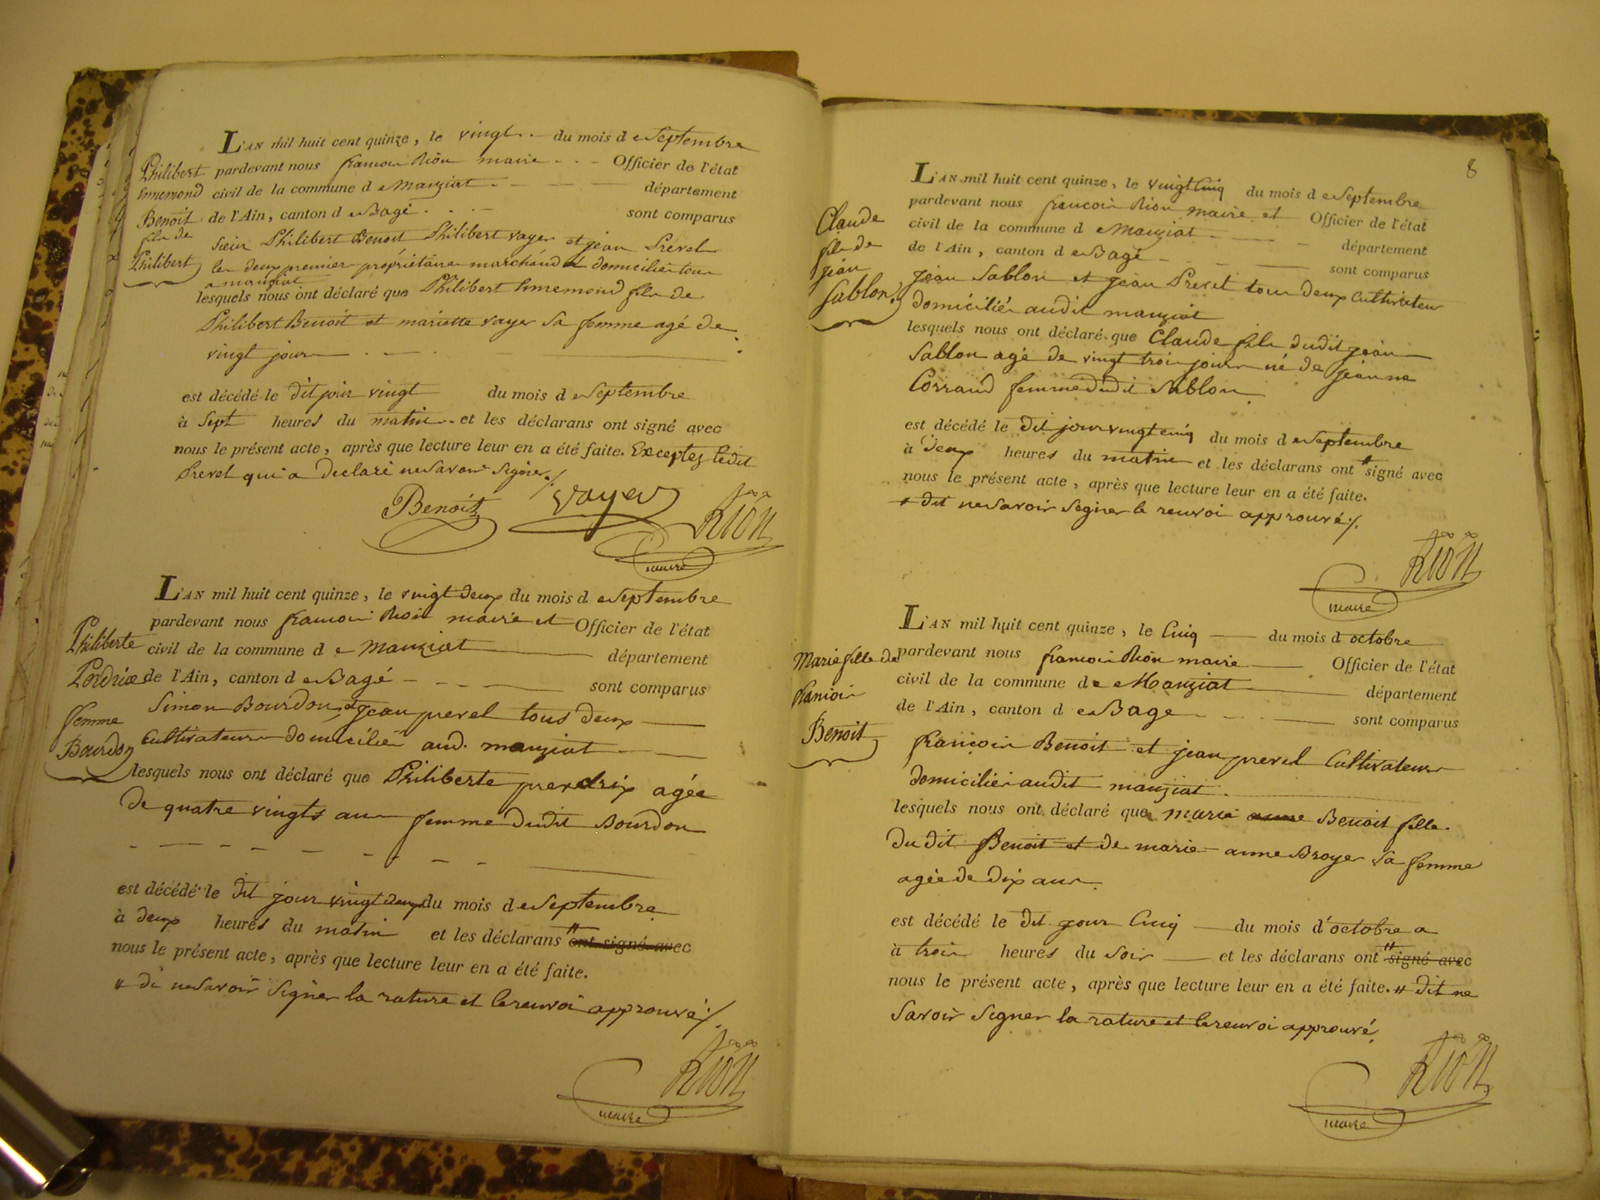 L'AN mil huit cent quinze, le vingt - du mois d e Septembre
pardevant nous francois Rion maire - - Officier de l'état
civil de la commune d e Manziat - - département
de l'Ain, canton d e Bagé - - sont comparus
Philibert
Benoit
fils de
Philibert
Sieur Philibert Benoit Philibert vayer et jean Prevel
les deux premier propriétaire marchand et domicilié tous
a manziat
lesquels nous ont déclaré que Philibert fils de
Philibert Benoit et mariette vayer sa femme agé de
vingt jours
est décédé le dit jour vingt du mois d e Septembre
à Sept heures du matin - et les déclarans ont signé avec
nous le présent acte, après que lecture leur en a été faite. Exceptez ledit
Prevel qui a Declaré ne Savoir Signer ./.
Benoit Vayer Rion
maire
L'AN mil huit cent quinze, le vingt deux du mois d e Septembre
pardevant nous francois Rion maire et Officier de l'état
civil de la commune d e Manziat département
de l'Ain, canton d e Bagé - - sont comparus
Philiberte
Perdrix
femme
Bourdon
Simon Bourdon et jean prevel tous deux
Cultivateurs domicilié aud. manziat
lesquels nous ont déclaré que Philiberte perdrix agée
de quatre vingts ans femme dudit Bourdon
est décédé le dit jour vingt deux du mois d e Septembre
à deux heures du matin et les déclarans ont signé avec
nous le présent acte, après que lecture leur en a été faite.
# di ne Savoir Signer la rature et le renvoi approuvé ./.
Rion
maire
8
L'AN mil huit cent quinze, le vingt Cinq du mois d e Septembre
pardevant nous francois Rion maire et Officier de l'état
civil de la commune d e Manziat département
de l'Ain, canton d e Bagé - - sont comparus
Claude
fils de
jean
Sablon
Jean Sablon et jean Prevel tous deux Cultivateur
domicilié audit manziat
lesquels nous ont déclaré que Claude fils dudit jean
Sablon agé de vingt trois jours né de jeanne
Corrand femme dudit Sablon
est décédé le dit jour vingt cinq du mois d e Septembre
à Deux heures du matin et les déclarans ont # signé avec
nous le présent acte, après que lecture leur en a été faite.
# dit ne Savoir Signer le renvoi approuvé ./.
Rion
maire
L'AN mil huit cent quinze, le Cinq du mois d octobre
pardevant nous francois Rion maire Officier de l'état
civil de la commune d e Manziat département
de l'Ain, canton d e Bagé - - sont comparus
Marie fille de
francois
Benoit
francois Benoit et jean prevel Cultivateurs
domiciliés audit manziat
lesquels nous ont déclaré que marie anne Benoit fille
du dit Benoit et de marie anne Broyer sa femme
agée de dix ans
est décédé le dit jour Cinq du mois d'octobre a
à trois heures du Soir et les déclarans ont # signé avec
nous le présent acte, après que lecture leur en a été faite. # dit ne
Savoir Signer la rature et le renvoi approuvé
Rion
maire